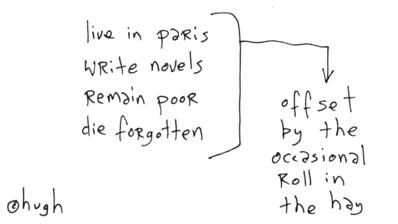 live in paris
write novels
Remain poor
die forgotten
offset
by the
occasional
Roll in
the hay
©hugh